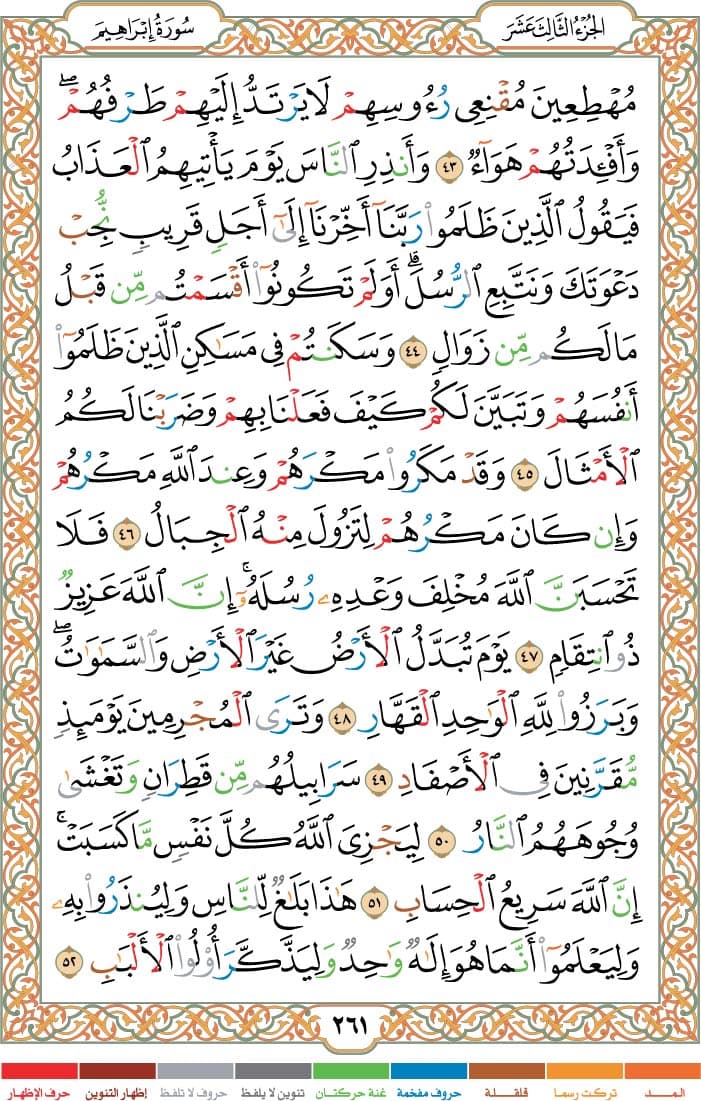 الجُزْءُ الثَّالِثَ عَشَرَ
سُورَةُ إِبْرَاهِيمَ
مُهْطِعِينَ مُقْنِعِى رُءُوسِهِمْ لَا يَرْتَدُّ إِلَيْهِمْ طَرْفُهُمْ ۖ
وَأَفْـِٔدَتُهُمْ هَوَآءٌ ٤٣ وَأَنذِرِ ٱلنَّاسَ يَوْمَ يَأْتِيهِمُ ٱلْعَذَابُ
فَيَقُولُ ٱلَّذِينَ ظَلَمُوا۟ رَبَّنَآ أَخِّرْنَآ إِلَىٰٓ أَجَلٍ قَرِيبٍ نُّجِبْ
دَعْوَتَكَ وَنَتَّبِعِ ٱلرُّسُلَ ۗ أَوَلَمْ تَكُونُوٓا۟ أَقْسَمْتُم مِّن قَبْلُ
مَا لَكُم مِّن زَوَالٍ ٤٤ وَسَكَنتُمْ فِى مَسَـٰكِنِ ٱلَّذِينَ ظَلَمُوٓا۟
أَنفُسَهُمْ وَتَبَيَّنَ لَكُمْ كَيْفَ فَعَلْنَا بِهِمْ وَضَرَبْنَا لَكُمُ
ٱلْأَمْثَالَ ٤٥ وَقَدْ مَكَرُوا۟ مَكْرَهُمْ وَعِندَ ٱللَّهِ مَكْرُهُمْ
وَإِن كَانَ مَكْرُهُمْ لِتَزُولَ مِنْهُ ٱلْجِبَالُ ٤٦ فَلَا
تَحْسَبَنَّ ٱللَّهَ مُخْلِفَ وَعْدِهِۦ رُسُلَهُۥٓ ۚ إِنَّ ٱللَّهَ عَزِيزٌ
ذُو ٱنتِقَامٍ ٤٧ يَوْمَ تُبَدَّلُ ٱلْأَرْضُ غَيْرَ ٱلْأَرْضِ وَٱلسَّمَـٰوَٰتُ ۖ
وَبَرَزُوا۟ لِلَّهِ ٱلْوَٰحِدِ ٱلْقَهَّارِ ٤٨ وَتَرَى ٱلْمُجْرِمِينَ يَوْمَئِذٍ
مُّقَرَّنِينَ فِى ٱلْأَصْفَادِ ٤٩ سَرَابِيلُهُم مِّن قَطِرَانٍ وَتَغْشَىٰ
وُجُوهَهُمُ ٱلنَّارُ ٥٠ لِيَجْزِىَ ٱللَّهُ كُلَّ نَفْسٍ مَّا كَسَبَتْ ۚ
إِنَّ ٱللَّهَ سَرِيعُ ٱلْحِسَابِ ٥١ هَـٰذَا بَلَـٰغٌ لِّلنَّاسِ وَلِيُنذَرُوا۟ بِهِۦ
وَلِيَعْلَمُوٓا۟ أَنَّمَا هُوَ إِلَـٰهٌ وَٰحِدٌ وَلِيَذَّكَّرَ أُو۟لُوا۟ ٱلْأَلْبَـٰبِ ٥٢
٢٦١
المــــد تركت رسما قلقـــلة حروف مفخمة غنة حركتـان تنوين لا يلفظ حروف لا تلفظ إظهار التنوين حرف الإظهار